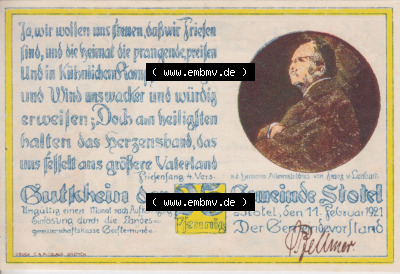 Ja, wir wollen uns freuen, daß wir Friesen
sind, und die Heimat die prangende, preisen
Und in
( www.embmv.de )
und Wind uns wacker und würdig
erweisen; Doch am heiligsten
halten das Herzensband, das
uns fesselt ans größere Vaterland
Friesensang 4. Vers
Gutschein der Gemeinde Stotel
( www.embmv.de )
Ungültig einen Monat nach
Einlösung durch die Landes-
Pfennig
Stotel, den 11. Februar 1921
Der Gemeindevorstand
( www.embmv.de )